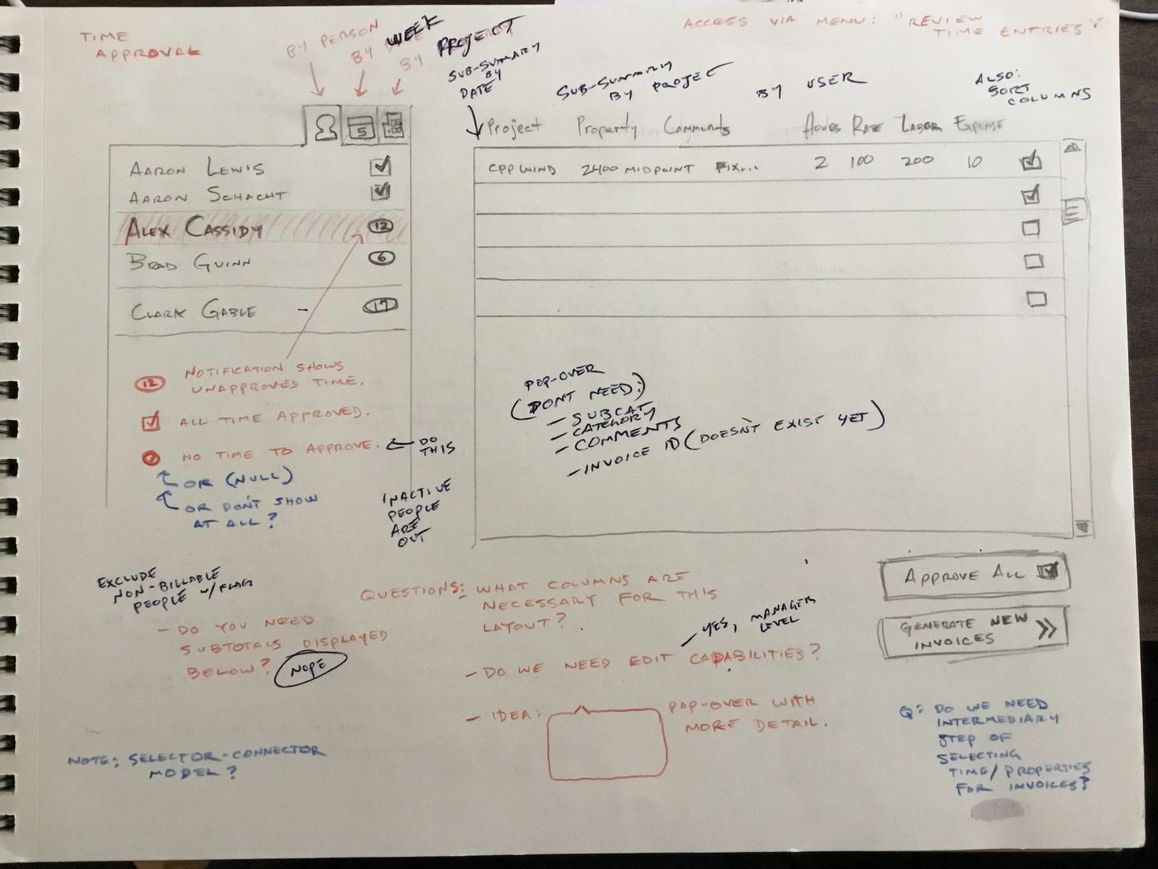 TIME
APPROVAL
BY PERSON
BY WEEK
BY PROJECT
ACCESS VIA MENU: "REVIEW
TIME ENTRIES"
SUB-SUMMARY
BY
DATE
SUB-SUMMARY
BY PROJECT
BY USER
ALSO:
SORT
COLUMNS
5
Project Property Comments Hours Rate Labor Expense
AARON LEWIS
AARON SCHACHT
ALEX CASSIDY 12
BRAD GUINN 6
CLARK GABLE - 17
CPP WIND 2400 MIDPOINT FIX... 2 100 200 10
12 NOTIFICATION SHOWS
UNAPPROVED TIME.
ALL TIME APPROVED.
NO TIME TO APPROVE. ← DO
THIS
OR (NULL)
OR DON'T SHOW
AT ALL?
INACTIVE
PEOPLE
ARE
OUT
POP-OVER
(DONT NEED:)
- SUBCAT
- CATEGORY
- COMMENTS
- INVOICE ID (DOESN'T EXIST YET)
APPROVE ALL
GENERATE NEW
INVOICES >>
EXCLUDE
NON-BILLABLE
PEOPLE W/FLAG
- DO YOU NEED
SUBTOTALS DISPLAYED
BELOW? NOPE
QUESTIONS: WHAT COLUMNS ARE
NECESSARY FOR THIS
LAYOUT?
- YES, MANAGER
LEVEL
- DO WE NEED EDIT CAPABILITIES?
- IDEA: POP-OVER WITH
MORE DETAIL.
NOTE: SELECTOR-CONNECTOR
MODEL?
Q: DO WE NEED
INTERMEDIARY
STEP OF
SELECTING
TIME/PROPERTIES
FOR INVOICES?